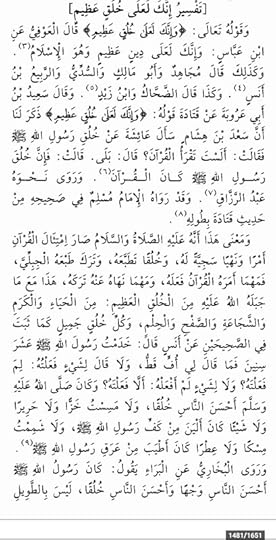 [تَفْسِيرُ إِنَّكَ لَعَلَى خُلُقٍ عَظِيمٍ]
وَقَوْلُهُ تَعَالَى: ﴿وَإِنَّكَ لَعَلَى خُلُقٍ عَظِيمٍ﴾ قَالَ الْعَوْفِيُّ عَنِ
ابْنِ عَبَّاسٍ: وَإِنَّكَ لَعَلَى دِينٍ عَظِيمٍ وَهُوَ الْإِسْلَامُ(٣).
وَكَذَلِكَ قَالَ مُجَاهِدٌ وَأَبُو مَالِكٍ وَالسُّدِّيُّ وَالرَّبِيعُ بْنُ
أَنَسٍ(٤). وَكَذَا قَالَ الضَّحَّاكُ وَابْنُ زَيْدٍ(٥). وَقَالَ سَعِيدُ بْنُ
أَبِي عَرُوبَةَ عَنْ قَتَادَةَ قَوْلُهُ: ﴿وَإِنَّكَ لَعَلَى خُلُقٍ عَظِيمٍ﴾ ذُكِرَ لَنَا
أَنَّ سَعْدَ بْنَ هِشَامٍ سَأَلَ عَائِشَةَ عَنْ خُلُقِ رَسُولِ اللهِ ﷺ
فَقَالَتْ: أَلَسْتَ تَقْرَأُ الْقُرْآنَ؟ قَالَ: بَلَى. قَالَتْ: فَإِنَّ خُلُقَ
رَسُولِ اللهِ ﷺ كَانَ الْقُرْآنَ(٦). وَرَوَى نَحْوَهُ
عَبْدُ الرَّزَّاقِ(٧). وَقَدْ رَوَاهُ الْإِمَامُ مُسْلِمٌ فِي صَحِيحِهِ مِنْ
حَدِيثِ قَتَادَةَ بِطُولِهِ(٨).
وَمَعْنَى هَذَا أَنَّهُ عَلَيْهِ الصَّلَاةُ وَالسَّلَامُ صَارَ امْتِثَالُ الْقُرْآنِ
أَمْرًا وَنَهْيًا سَجِيَّةً لَهُ، وَخُلُقًا تَطَبَّعَهُ، وَتَرَكَ طَبْعَهُ الْجِبِلِّيَّ،
فَمَهْمَا أَمَرَهُ الْقُرْآنُ فَعَلَهُ، وَمَهْمَا نَهَاهُ عَنْهُ تَرَكَهُ، هَذَا مَعَ مَا
جَبَلَهُ اللهُ عَلَيْهِ مِنَ الْخُلُقِ الْعَظِيمِ: مِنَ الْحَيَاءِ وَالْكَرَمِ
وَالشَّجَاعَةِ وَالصَّفْحِ وَالْحِلْمِ، وَكُلِّ خُلُقٍ جَمِيلٍ كَمَا ثَبَتَ
فِي الصَّحِيحَيْنِ عَنْ أَنَسٍ قَالَ: خَدَمْتُ رَسُولَ اللهِ ﷺ عَشْرَ
سِنِينَ فَمَا قَالَ لِي أُفٍّ قَطُّ، وَلَا قَالَ لِشَيْءٍ فَعَلْتُهُ: لِمَ
فَعَلْتَهُ؟ وَلَا لِشَيْءٍ لَمْ أَفْعَلْهُ: أَلَا فَعَلْتَهُ؟ وَكَانَ صَلَّى اللهُ عَلَيْهِ
وَسَلَّمَ أَحْسَنَ النَّاسِ خُلُقًا، وَلَا مَسِسْتُ خَزًّا وَلَا حَرِيرًا
وَلَا شَيْئًا كَانَ أَلْيَنَ مِنْ كَفِّ رَسُولِ اللهِ ﷺ، وَلَا شَمِمْتُ
مِسْكًا وَلَا عِطْرًا كَانَ أَطْيَبَ مِنْ عَرَقِ رَسُولِ اللهِ ﷺ(٩).
وَرَوَى الْبُخَارِيُّ عَنِ الْبَرَاءِ يَقُولُ: كَانَ رَسُولُ اللهِ ﷺ
أَحْسَنَ النَّاسِ وَجْهًا وَأَحْسَنَ النَّاسِ خُلُقًا، لَيْسَ بِالطَّوِيلِ
1481/1651